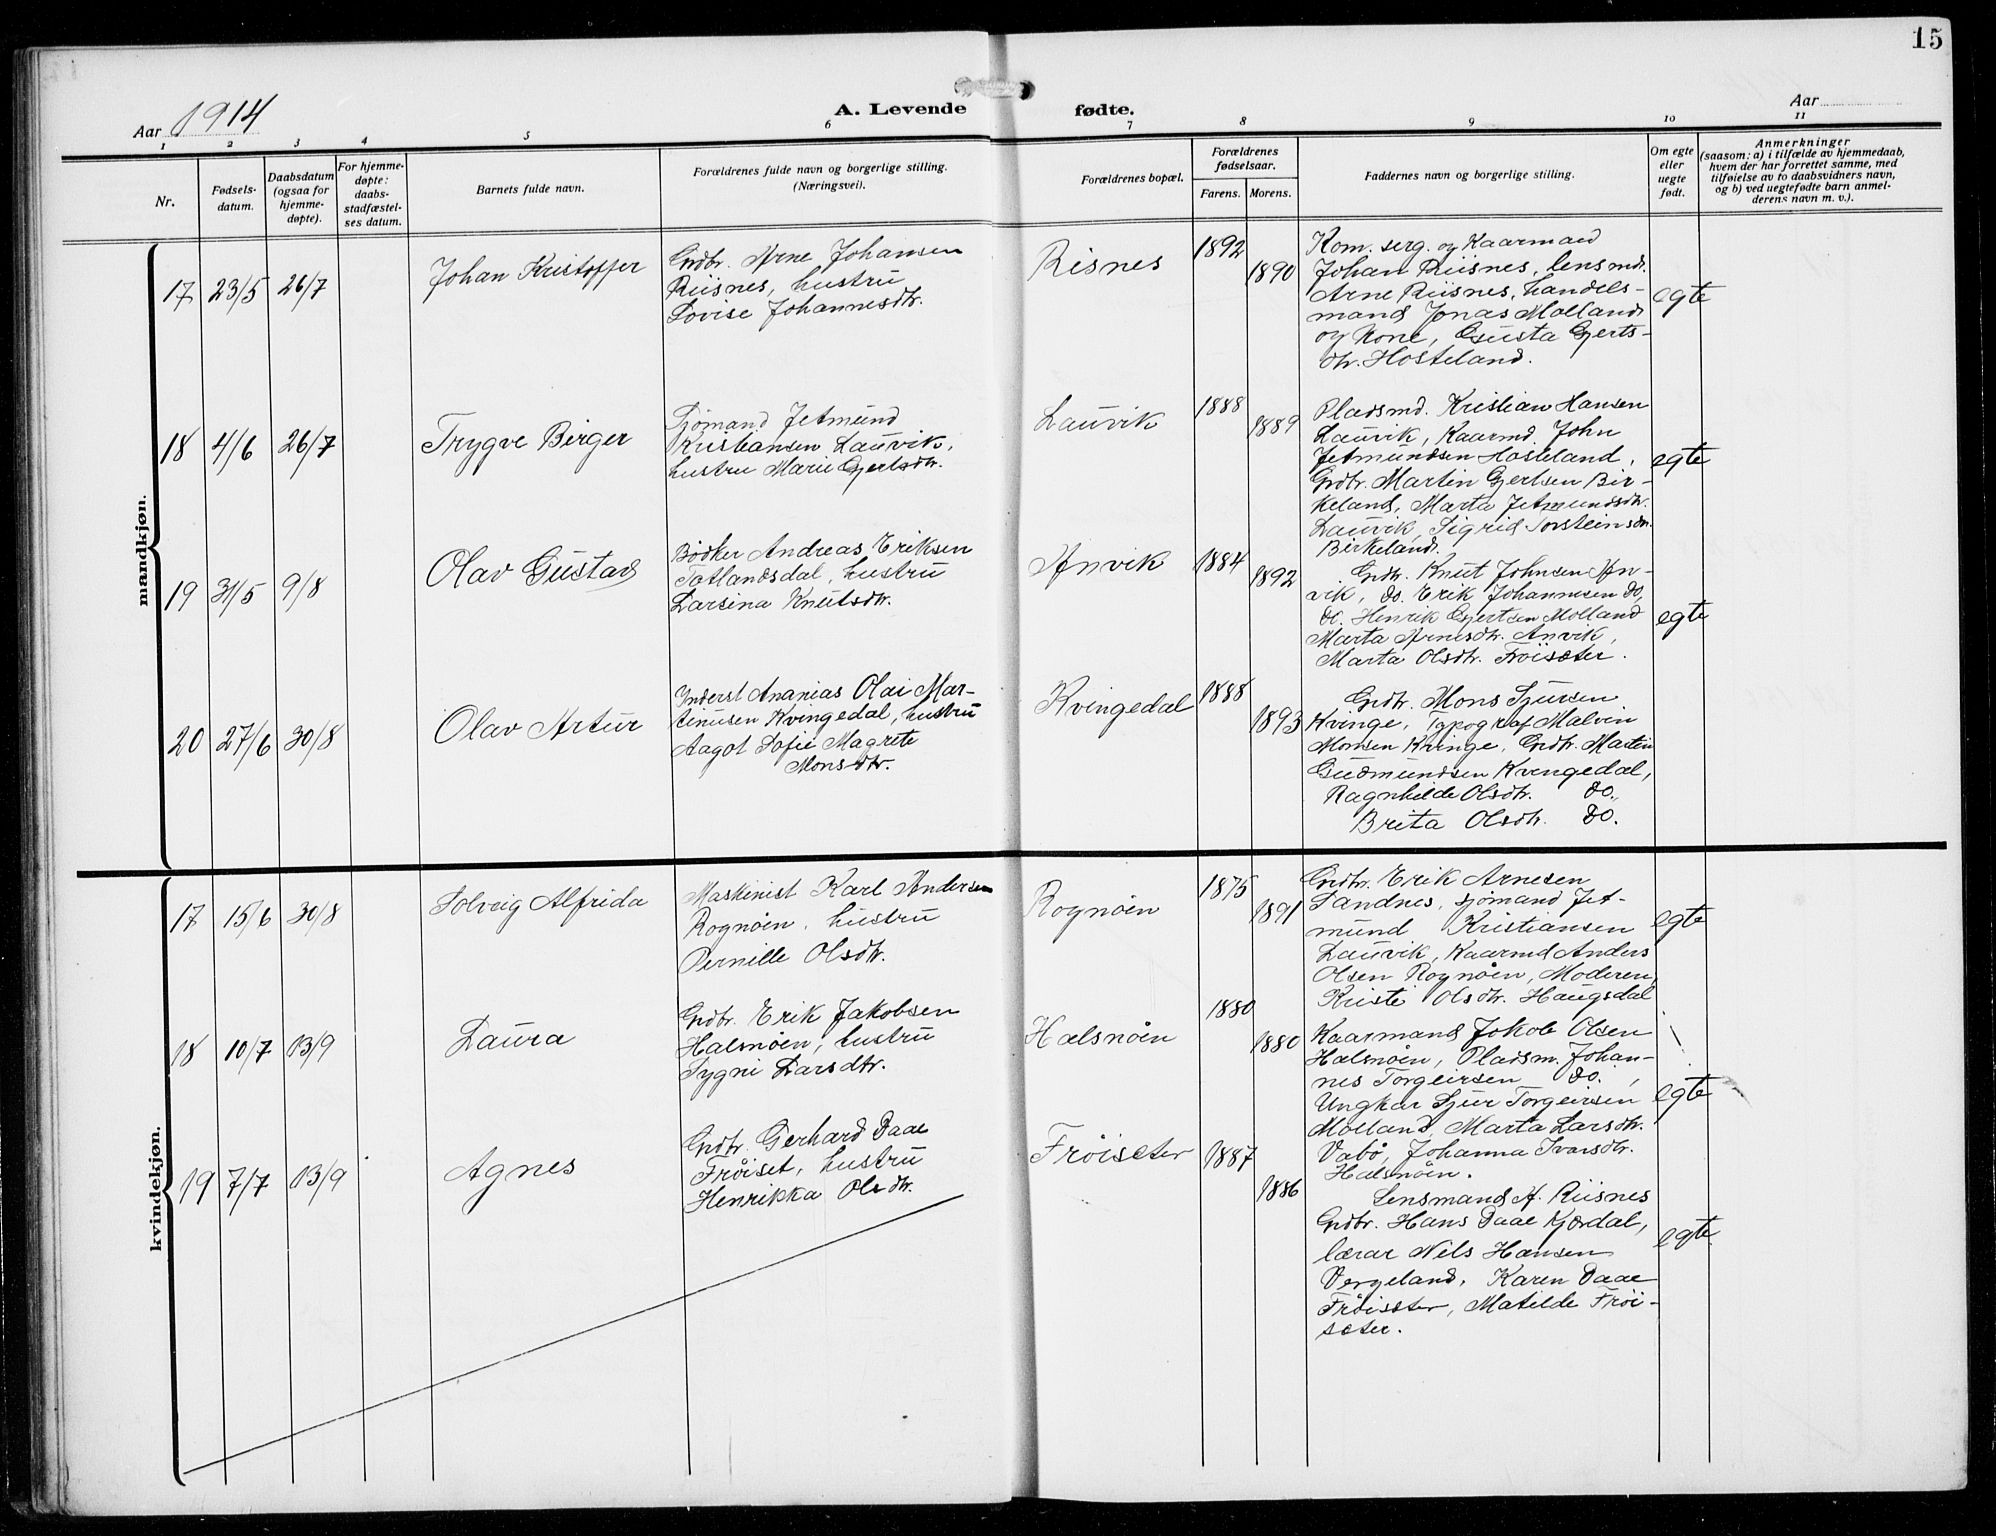 15
Aar 1914
A. Levende fødte.
Aar
1 2 3 4 5 6 7 8 9 10 11
Nr.
Fødsels-
datum.
Daabsdatum
(ogsaa for
hjemme-
døpte).
For hjemme-
døpte:
daabs-
stadfæstel-
ses datum.
Barnets fulde navn.
Forældrenes fulde navn og borgerlige stilling.
(Næringsvei).
Forældrenes bopæl.
Forældrenes
fødselsaar.
Farens. Morens.
Faddernes navn og borgerlige stilling.
Om egte
eller
uegte
født.
Anmerkninger
(saasom: a) i tilfælde av hjemmedaab,
hvem der har forrettet samme, med
tilføielse av to daabsvidners navn,
og b) ved uegtefødte barn anmel-
derens navn m. v.).
mandkjøn.
17 23/5 26/7
Johan Kristoffer
Grdbr. Arne Johansen
Riisnes, hustru
Lovise Johannesdtr.
Risnes
1892
1890
Kom. serg. og Kaarmand
Johan Riisnes, lensmd.
Arne Riisnes, handels-
mand Jonas Molland
og Kone, Gjusta Gjerts-
dtr. Hosteland.
egte
18 4/6 26/7
Trygve Birger
Sjömand Jetmund
Kristiansen Lauvik,
hustru Marie Gjertsdtr.
Lauvik
1888
1889
Pladsmd. Kristian Hansen
Lauvik, Kaarmd. John
Jetmundsen Hosteland,
Grdbr. Martin Gjertsen Bir-
keland, Marta Jetmundsdtr.
Lauvik, Sigrid Torsteinsdr.
Birkeland.
egte
19 31/5 9/8
Olav Gustav
Bödker Andreas Eriksen
Totlandsdal, hustru
Larsina Knutsdtr.
Anvik
1884
1892
Grdbr. Knut Johnsen An-
vik, do. Erik Johannesen do,
do. Henrik Gjertsen Molland
Marta Arnesdtr. Anvik,
Marta Olsdtr. Fröisæter.
egte
20 27/6 30/8
Olav Artur
Inderst Ananias Olai Mar-
tinusen Kvingedal, hustru
Aagot Sofie Magrete
Monsdtr.
Kvingedal
1888
1893
Grdbr. Mons Sjursen
Kvinge, Typograf Malvin
Monsen Kvinge, Grdbr. Martin
Gudmundsen Kvingedal,
Ragnhilde Olsdtr. do.,
Brita Olsdtr. do.
kvindekjøn.
17 15/6 30/8
Solveig Alfrida
Maskinist Karl Andersen
Rognöen, hustru
Pernille Olsdtr.
Rognöen
1875
1891
Grdbr. Erik Arnesen
Sandnes, sjömand Jet-
mund Kristiansen
Lauvik, Kaarmd Anders
Olsen Rognöen, Moderen,
Kristi Olsdtr. Haugsdal
egte
18 10/7 13/9
Laura
Grdbr. Erik Jakobsen
Halsnöen, hustru
Sygni Larsdtr.
Halsnöen
1880
1880
Kaarmand Jokob Olsen
Halsnöen, Pladsm. Johan-
nes Torgeirsen do.,
Ungkar Sjur Torgeirsen
Molland, Marta Larsdtr.
Vabö, Johanna Ivarsdtr.
Halsnöen.
egte
19 7/7 13/9
Agnes
Grdbr. Gerhard Daae
Fröiset, hustru
Henrikka Olsdtr.
Fröisæter
1887
1886
Lensmand A. Riisnes
Grdbr. Hans Daae Kjordal,
lærar Nils Hansen
Vergeland, Karen Daae
Fröisæter, Matilde Fröi-
sæter.
egte